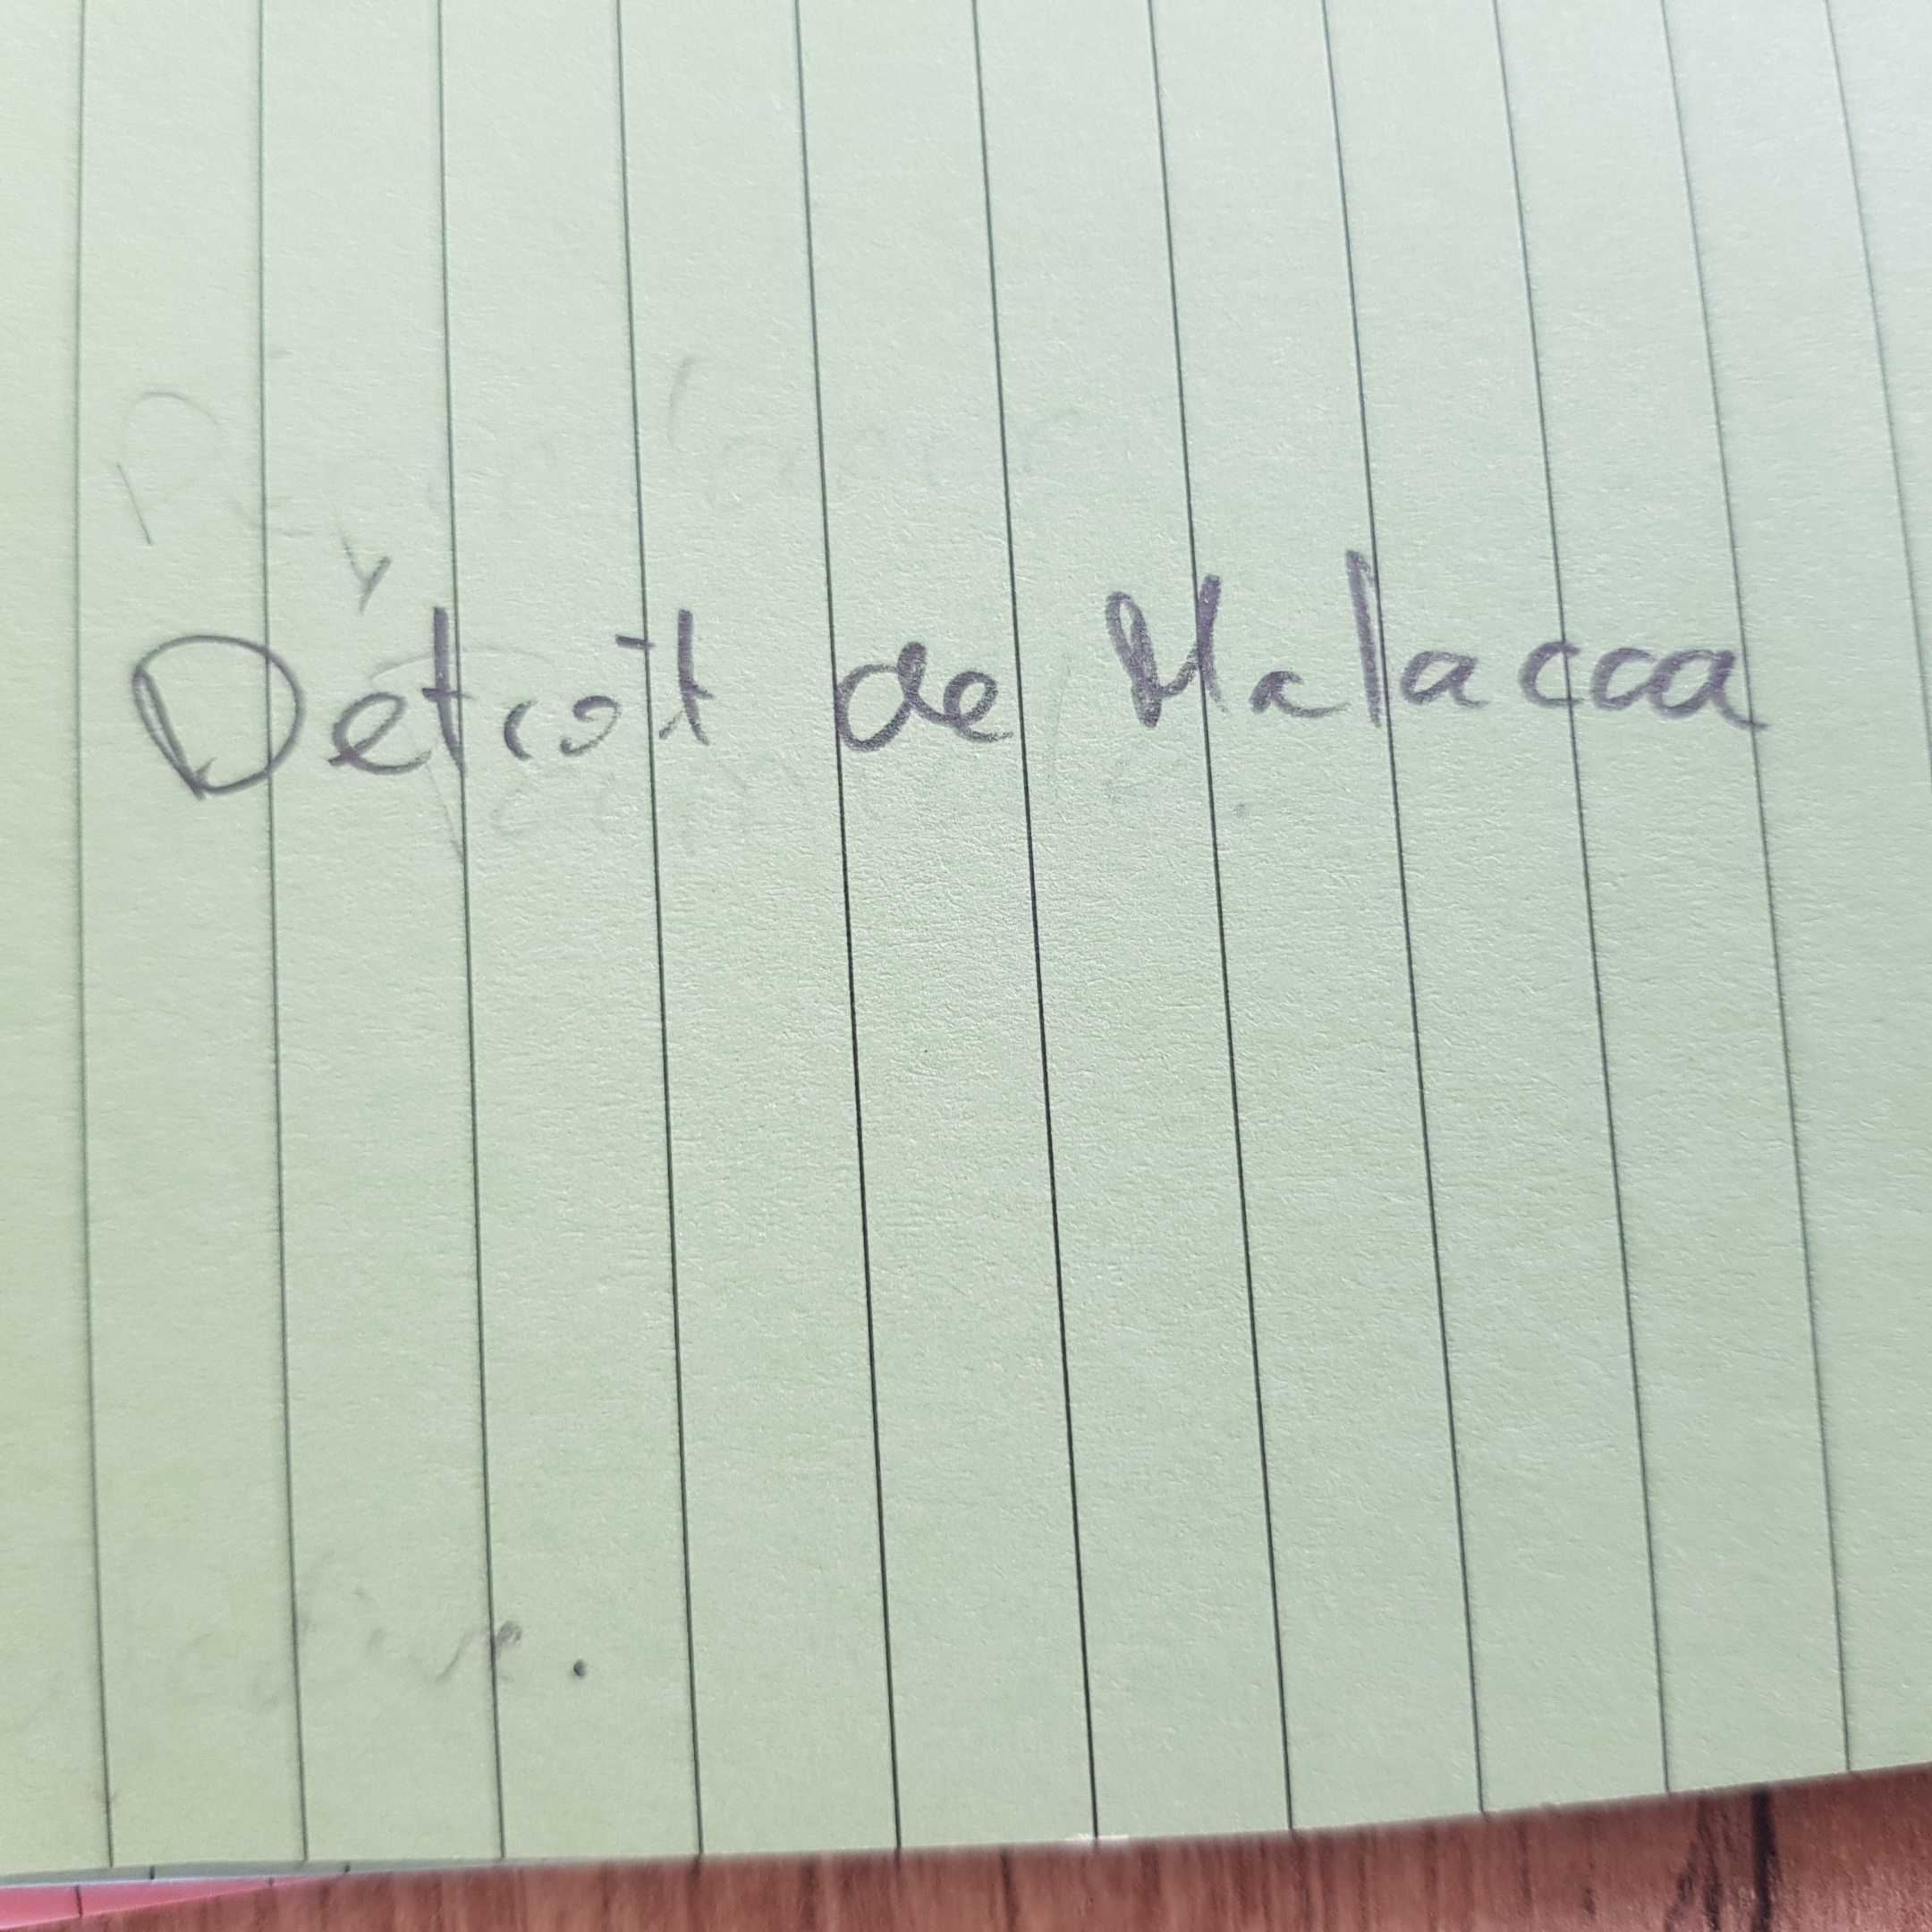 Détroit de Malacca